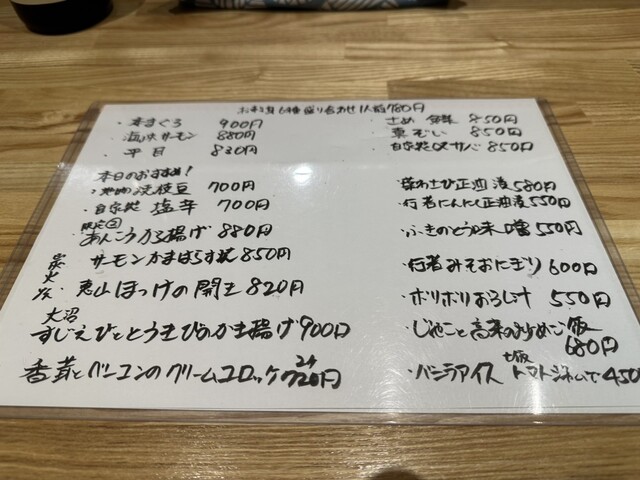 お刺身6種盛り合わせ1人前780円
・本まぐろ 900円
・海峡サーモン 880円
・平目 830円
850円
850円
・自家製〆サバ 850円
本日のおすすめ!
焼枝豆 700円
・自家製 塩辛 700円
限定②
・あんこうから揚げ 880円
・サーモンかまはらす焼 850円
・恵山ほっけの開き 820円
大沼
すじえびととうきびのかき揚げ 900円
香茸とベーコンのクリームコロッケ 2ヶ 720円
・葉わさび正油漬 580円
・行者にんにく正油漬 550円
・ふきのとう味噌 550円
・行者みそおにぎり 600円
・ポリポリおろし汁 550円
・じゃこと高菜の
飯
680円
・バニラアイス トマトジャムで 450